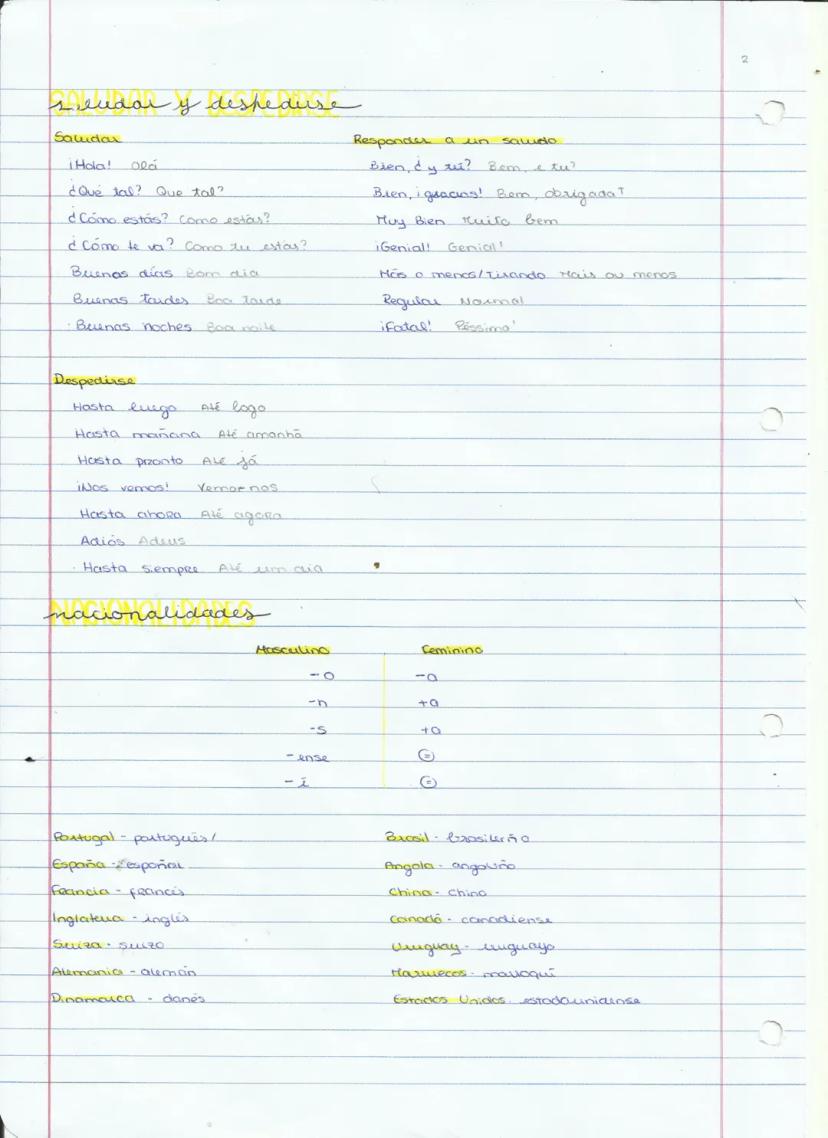 2
saludar y despedirse
Saludar
¡Hola! Olá
¿Qué tal? Que tal?
¿Cómo estás? Como estás?
¿Cómo te va? Como tu estás?
Buenos días Bom dia
Buenas tardes Boa tarde
Buenas noches Boa noite
Responder a un saludo
Bien, ¿y tú? Bem, e tu?
Bien, ¡gracias! Bem, obrigada!
Muy Bien Muito bem
¡Genial! Genial!
Más o menos/Tirando Mais ou menos
Regular Normal
¡Fatal! Péssimo!
Despedirse
Hasta luego Até logo
Hasta mañana Até amanhã
Hasta pronto Até já
¡Nos vemos! Vemo-nos
Hasta ahora Até agora
Adiós Adeus
Hasta siempre Até um dia
nacionalidades
Masculino Feminino
-o -a
-n +a
-s +a
-ense (=)
-í (=)
Portugal - portugués/
España - español
Francia - francés
Inglaterra - inglés
Suiza - suizo
Alemania - alemán
Dinamarca - danés
Brasil - brasileño
Angola - angoleño
China - chino
Canadá - canadiense
Uruguay - uruguayo
Marruecos - marroquí
Estados Unidos - estadounidense